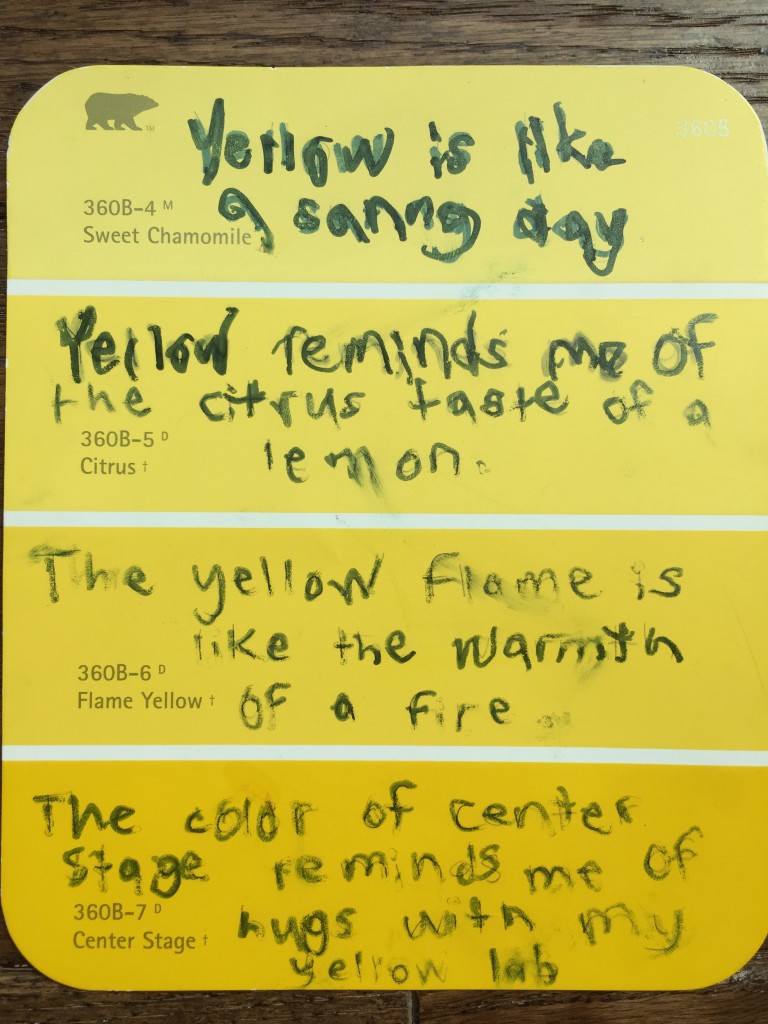 360B
Yellow is like
a sanny day
360B-4 M
Sweet Chamomile
Yellow reminds me of
the citrus taste of a
lemon.
360B-5 D
Citrus †
The yellow flame is
like the warmth
of a fire.
360B-6 D
Flame Yellow †
The color of center
stage reminds me of
hugs with my
yellow lab
360B-7 D
Center Stage †